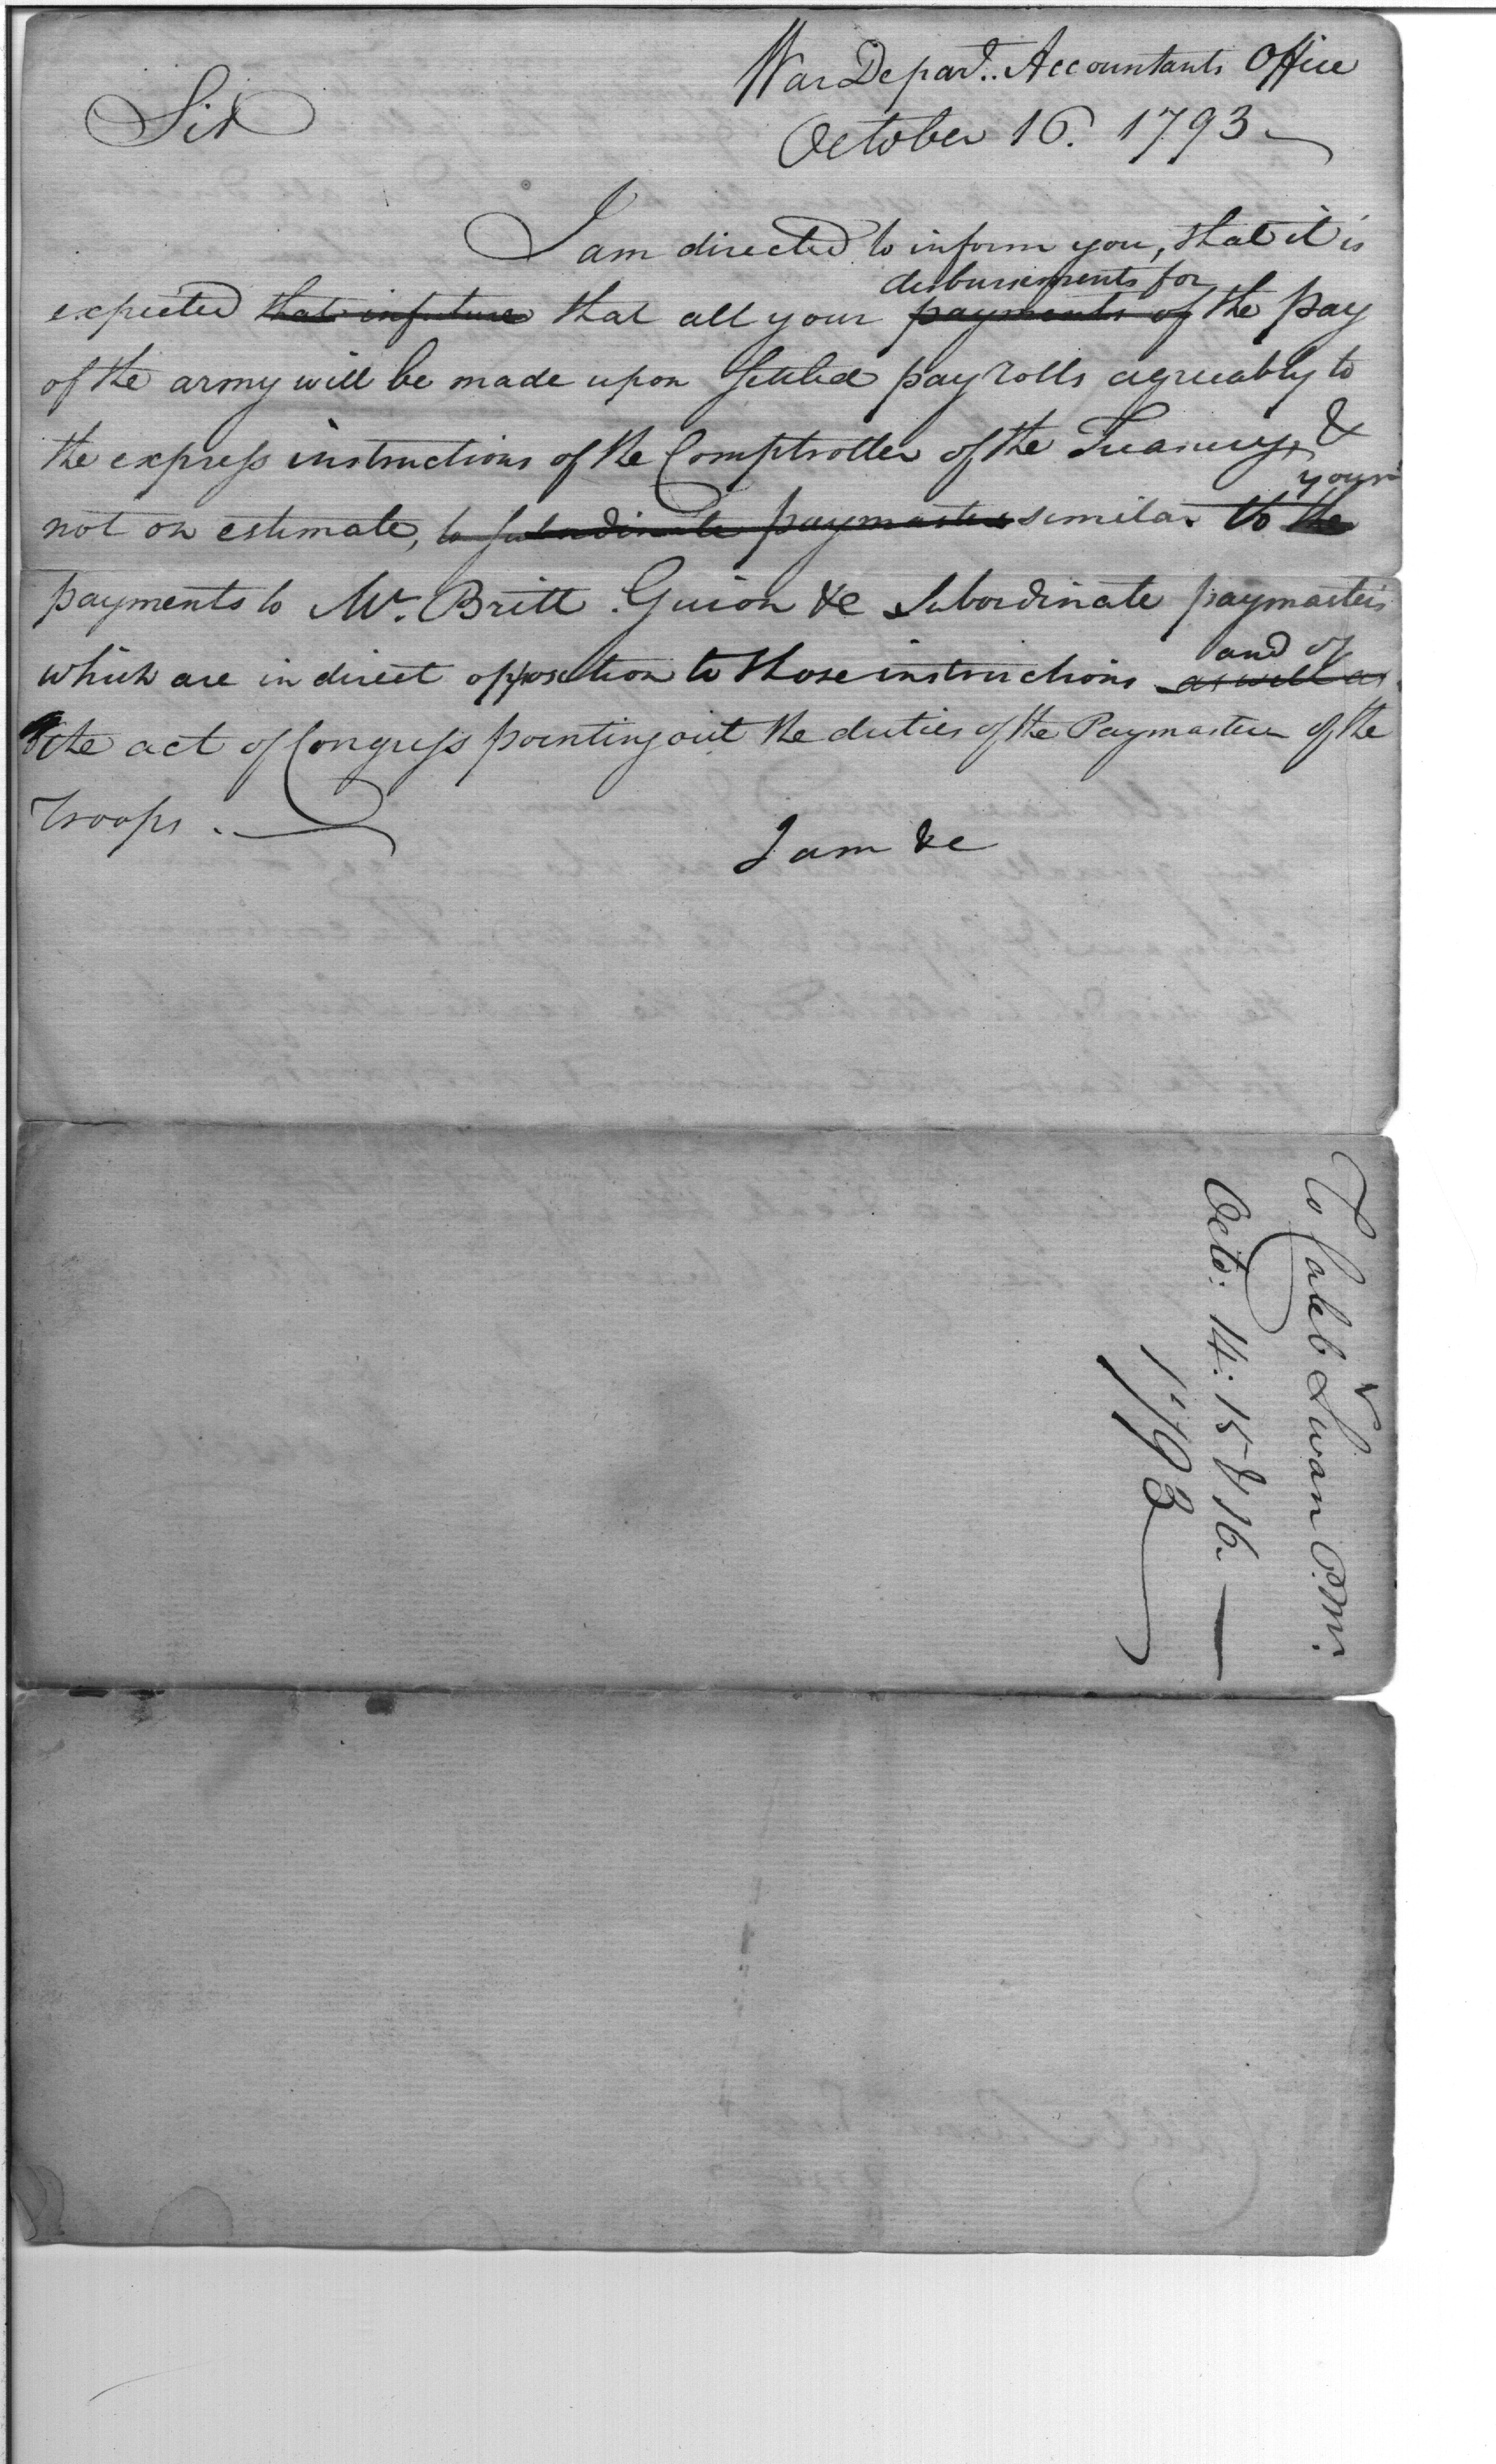 War Depart. Accountants Office
Sir
October 16. 1793
I am directed to inform you, that it is
disbursements for
expected that in future that all your payments of the pay
of the army will be made upon settled pay rolls agreeably to
the express instructions of the Comptroller of the Treasury, &
your
not on estimate, to subordinate paymasters similar to the
payments to Mr. Britt Guion &c subordinate paymasters
and of
which are in direct opposition to those instructions as well as
the act of Congress pointing out the duties of the Paymaster of the
Troops.
I am &c
To Caleb Swan P.Mr.
Octo: 14: 15 & 16.
1793